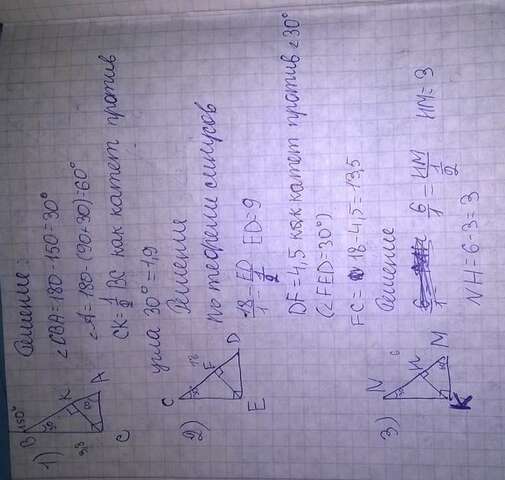 1)
B 150°
30
K
3,8
60
C
A
Решение:
∠CBA = 180 - 150 = 30°
∠A = 180 - (90 + 30) = 60°
CK = 1/2 BC как катет против
угла 30° = 1,9
2)
C
30
18
F
E
D
Решение
по теореме синусов
18/1 = ED/(1/2) ED = 9
DF = 4,5 как катет против ∠30°
(∠FED = 30°)
FC = 18 - 4,5 = 13,5
3)
N
30
6
H
60
K
M
Решение
6/1 = HM/(1/2) HM = 3
NH = 6 - 3 = 3